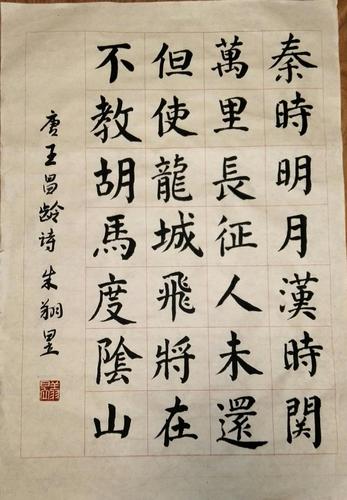 秦時明月漢時関
萬里長征人未還
但使龍城飛將在
不教胡馬度陰山
唐王昌齡詩 朱翔里